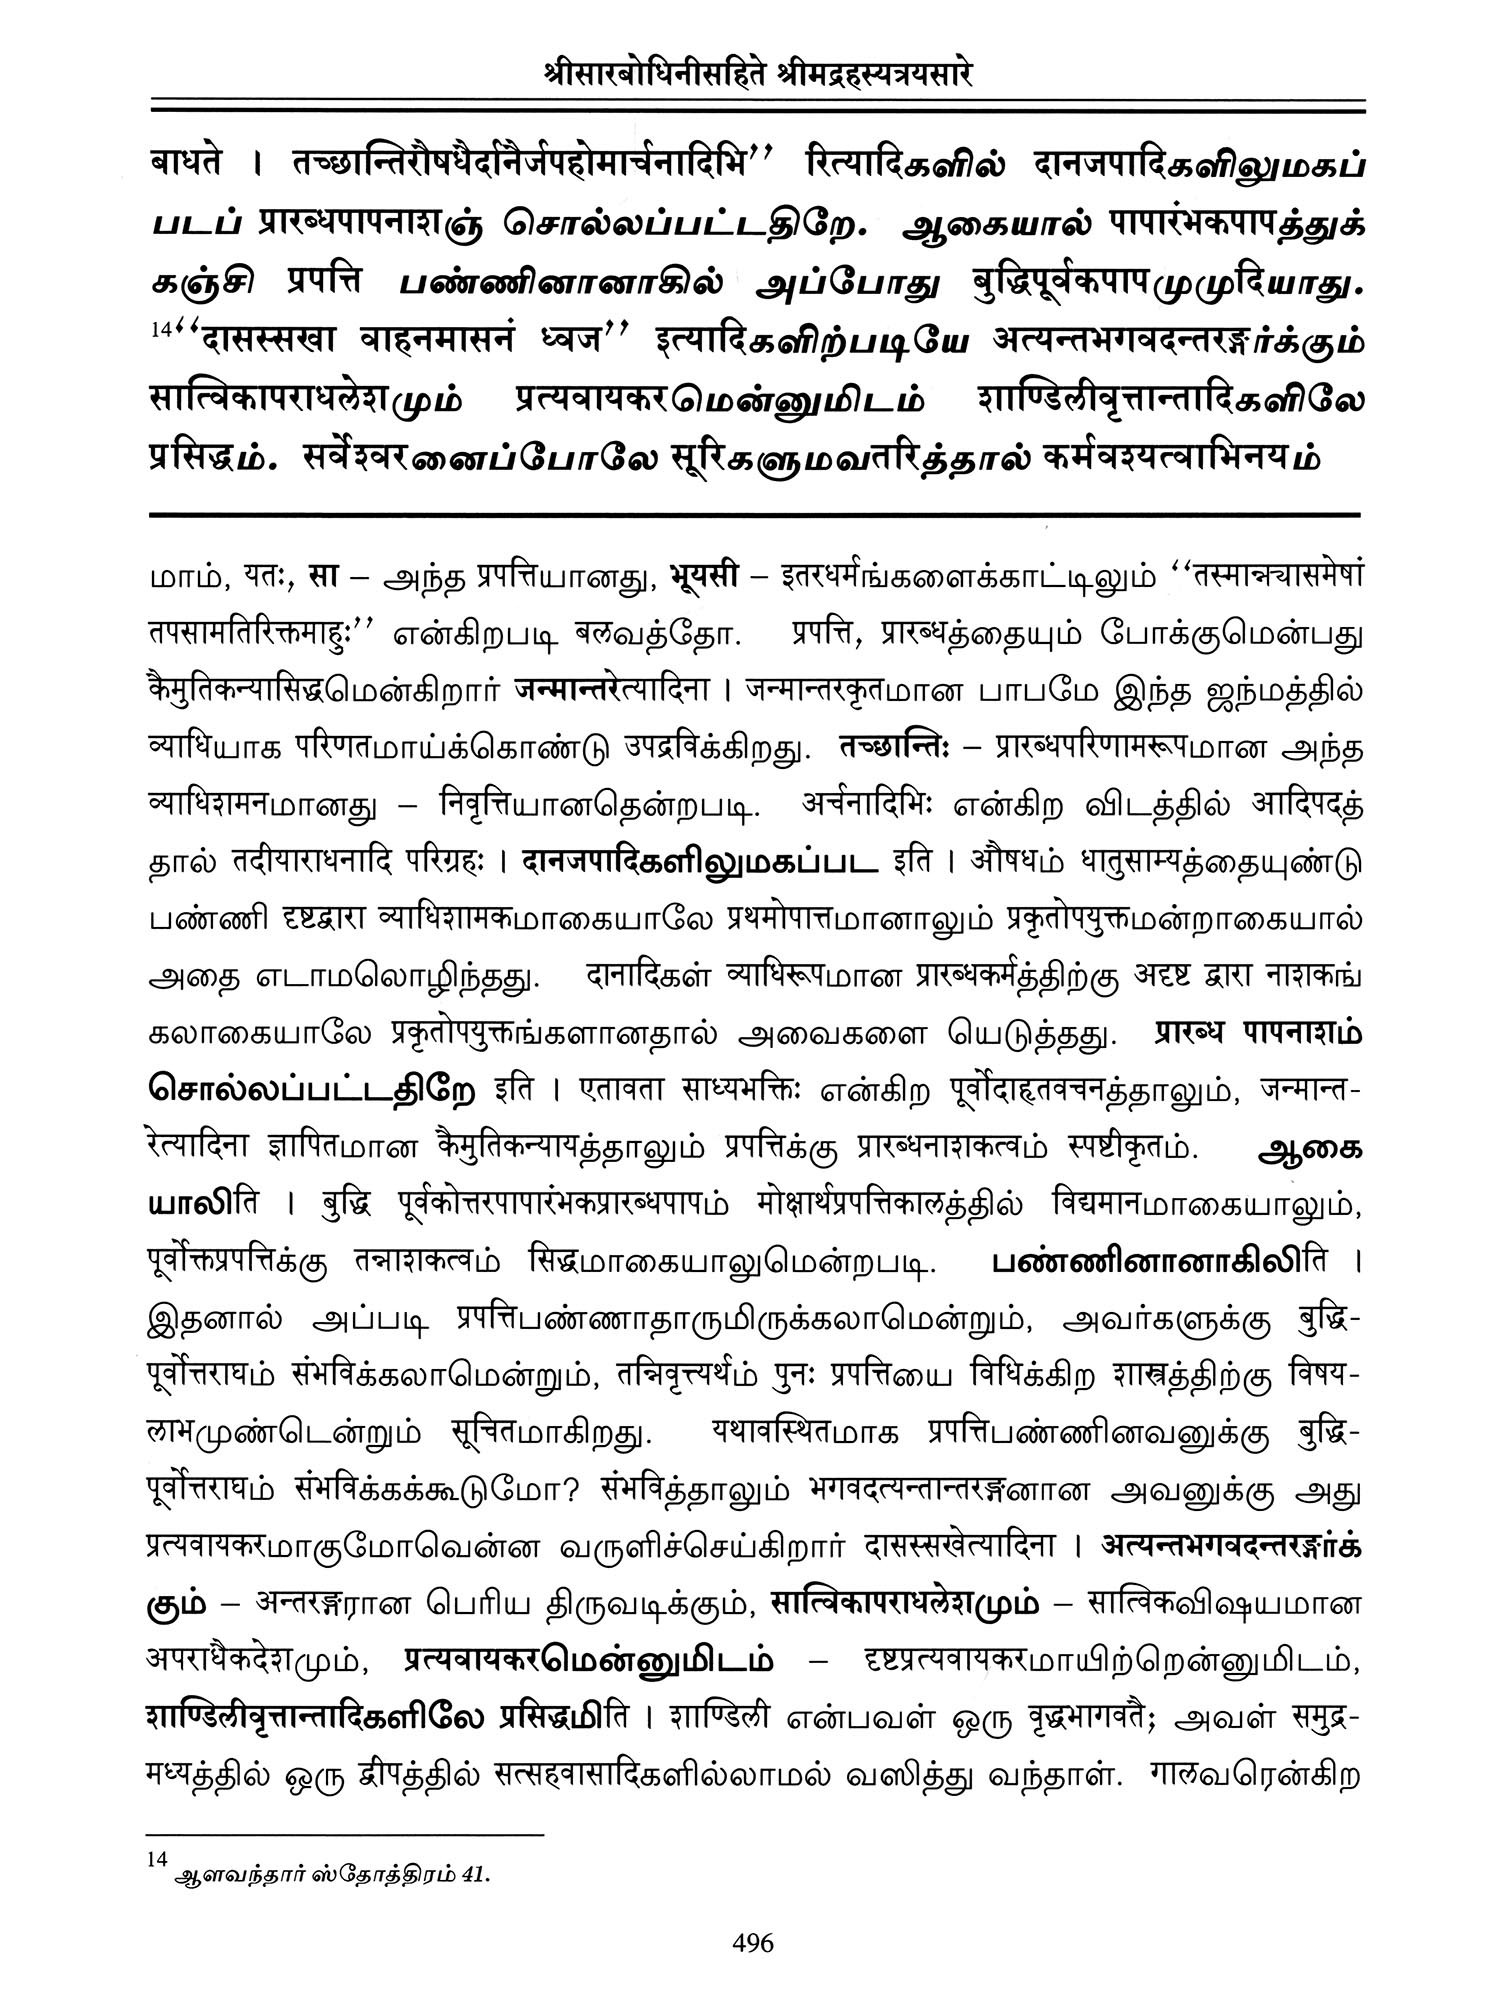 श्रीसारबोधिनीसहिते श्रीमद्रहस्यत्रयसारे
बाधते । तच्छान्तिरौषधैर्दानैर्जपहोमार्चनादिभि’’ रित्यादिகளில் दानजपादिகளிலுமகப்
படப் प्रारब्धपापनाशஞ் சொல்லப்பட்டதிறே. ஆகையால் पापारंभकपापத்துக்
கஞ்சி प्रपत्ति பண்ணினானாகில் அப்போது बुद्धिपूर्वकपापமுமுदिயாது.
14‘‘दासस्सखा वाहनमासनं ध्वज’’ इत्यादिகளிற்படியே अत्यन्तभगवदन्तरङ्गர்க்கும்
सात्विकापराधलेशமும் प्रत्यवायकरமென்னுமிடம் शाण्डिलीवृत्तान्तादिகளிலே
प्रसिद्धம். सर्वेश्वरனைப்போலே सूरिகளுமவतरिத்தால் कर्मवश्यत्वाभिनयம்
மாம், यतः, सा – அந்த प्रपत्तिயானது, भूयसी – इतरधर्मங்களைக்காட்டிலும் ‘‘तस्मान्न्यासमेषां
तपसामतिरिक्तमाहुः’’ என்கிறபடி बलவத்தோ. प्रपत्ति, प्रारब्धத்தையும் போக்குமென்பது
कैमुतिकन्यासिद्धமென்கிறார் जन्मान्तरेत्यादिना । जन्मान्तरकृतமான பாபமே இந்த ஜந்மத்தில்
व्याधिயாக परिणतமாய்க்கொண்டு उपद्रविக்கிறது. तच्छान्तिः – प्रारब्धपरिणामरूपமான அந்த
व्याधिशमनமானது – निवृत्तिயானதென்றபடி. अर्चनादिभिः என்கிற விடத்தில் आदिपदத்
தால் तदीयाराधनादि परिग्रहः । दानजपादिகளிலுமகப்பட इति । औषधம் धातुसाम्यத்தையுண்டு
பண்ணி दृष्टद्वारा व्याधिशामकமாகையாலே प्रथमोपात्तமானாலும் प्रकृतोपयुक्तமன்றாகையால்
அதை எடாமலொழிந்தது. दानादिகள் व्याधिरूपமான प्रारब्धकर्मத்திற்கு अदृष्ट द्वारा नाशकங்
களாகையாலே प्रकृतोपयुक्तங்களானதால் அவைகளை யெடுத்தது. प्रारब्ध पापनाशம்
சொல்லப்பட்டதிறே इति । एतावता साध्यभक्तिः என்கிற पूर्वोदाहृतवचनத்தாலும், जन्मान्त-
रेत्यादिना ज्ञापितமான कैमुतिकन्यायத்தாலும் प्रपत्तिக்கு प्रारब्धनाशकत्वம் स्पष्टीकृतம். ஆகை
யாலிति । बुद्धि पूर्वकोत्तरपापारंभकप्रारब्धपापம் मोक्षार्थप्रपत्तिकालத்தில் विद्यमानமாகையாலும்,
पूर्वोक्तप्रपत्तिக்கு तन्नाशकत्वம் सिद्धமாகையாலுமென்றபடி. பண்ணினானாகிலிति ।
இதனால் அப்படி प्रपत्तिபண்ணாதாருமிருக்கலாமென்றும், அவர்களுக்கு बुद्धि-
पूर्वोत्तराघம் संभविக்கலாமென்றும், तन्निवृत्त्यर्थம் पुनः प्रपत्तिயை विधिக்கிற शास्त्रத்திற்கு विषय-
लाभமுண்டென்றும் सूचितமாகிறது. यथावस्थितமாக प्रपत्तिபண்ணினவனுக்கு बुद्धि-
पूर्वोत्तराघம் संभविக்கக்கூடுமோ? संभविத்தாலும் भगवदत्यन्तान्तरङ्गனான அவனுக்கு அது
प्रत्यवायकरமாகுமோவென்ன வருளிச்செய்கிறார் दासस्सखेत्यादिना । अत्यन्तभगवदन्तरङ्गர்க்
கும் – अन्तरङ्गரான பெரிய திருவடிக்கும், सात्विकापराधलेशமும் – सात्विकவிஷயமான
अपराधैकदेशமும், प्रत्यवायकरமென்னுமிடம் – दृष्टप्रत्यवायकरமாயிற்றென்னுமிடம்,
शाण्डिलीवृत्तान्तादिகளிலே प्रसिद्धமிति । शाण्डिली என்பவள் ஒரு वृद्धभागवतै; அவள் समुद्र-
मध्यத்தில் ஒரு द्वीपத்தில் सत्सहवासादिகளில்லாமல் வஸித்து வந்தாள். गालवரென்கிற
14 ஆளவந்தார் ஸ்தோத்திரம் 41.
496